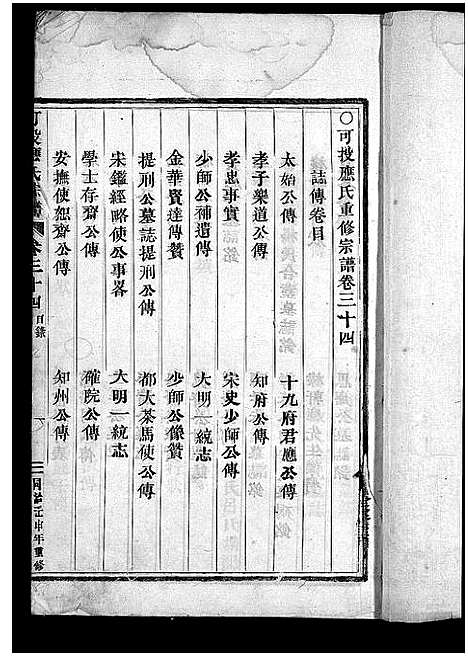 〇可投應氏重修宗譜卷三十四
誌傳卷目
太始公傳　十九府君應公傳
孝子樂道公傳　知府公傳
孝忠事實　宋史少師公傳
少師公補遺傳　大明一統志
金華賢達傳贊　少師公像贊
提刑公墓誌提刑公傳　都大茶馬使公傳
宋鑑經略使公事畧　大明一統志
學士存齋公傳　確院公傳
安撫使恕齋公傳　知州公傳
可投應氏宗譜　卷三十四　目錄
同治壬申年重修